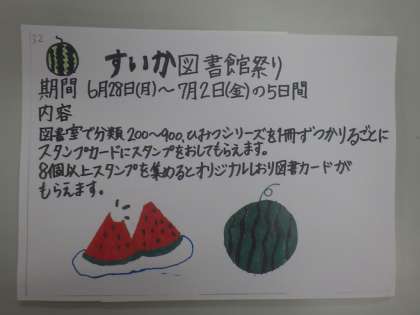 32
すいか図書館祭り
期間 6月28日(月)～7月2日(金)の5日間
内容
図書室で分類200～900、ひみつシリーズを1冊ずつかりるごとに
スタンプカードにスタンプをおしてもらえます。
8個以上スタンプを集めるとオリジナルしおり図書カードが
もらえます。